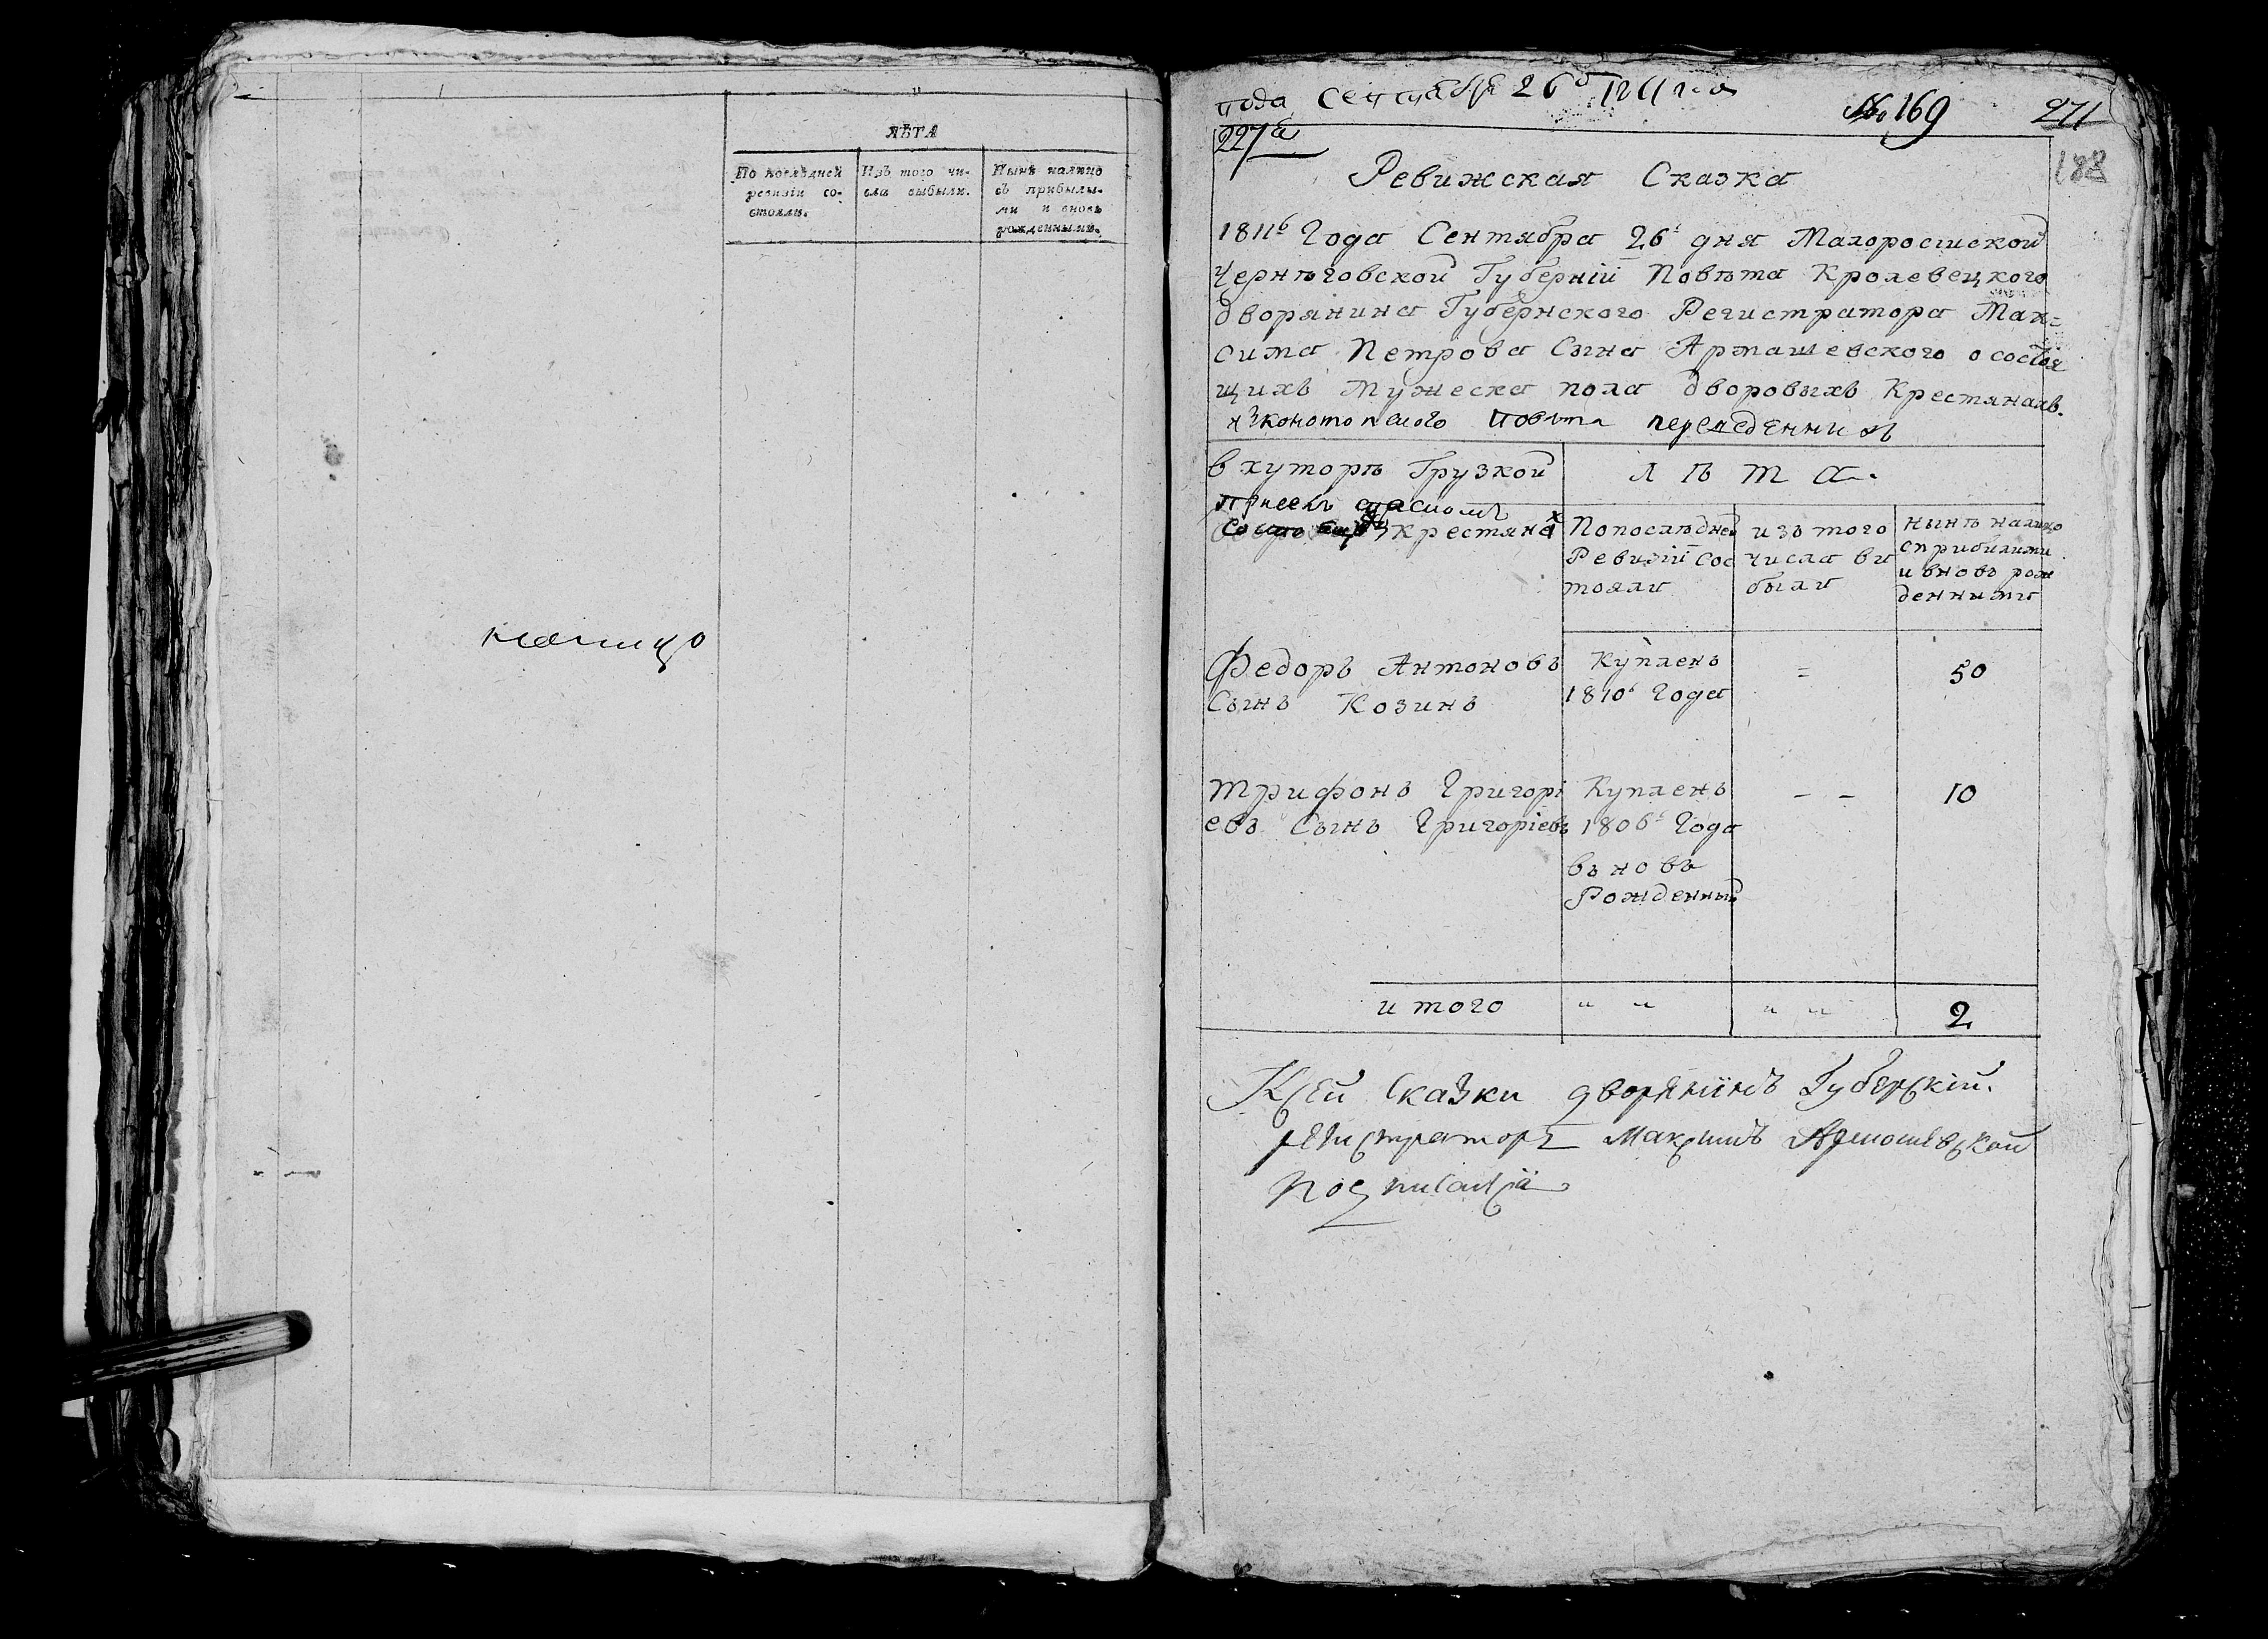 ЛѢТА
По послѣдней ревизіи состояли.
Изъ того числа выбыли.
Нынѣ налицо съ прибылыми и вновь рожденными.
пода Сентября 26º 1811 го
№ 169
271
227
188
Ревижская Сказка
1811º Года Сентября 26º дня Малоросииской
Чернѣговской Губерніи Повѣта Кролевецкого
дворянина Губернского Регистратора Мак=
сима Петрова Сына Армашевского о состоя
щихъ Мужеска пола дворовыхъ Крестянахъ.
изъ конотопского Повѣта переведенних
в хуторѣ Грузкой
Лѣта.
при селѣ Спаскомъ
Крестянах
По послѣдней
Ревизіи Сос
тояли
изъ того
числа ви
были
нынѣ налицо
с прибилими
и вновъ рож
денними
Федоръ Антоновъ
Сынъ Козинъ
Купленъ
1810º Года
=
50
Трифонъ Григорі
евъ Сынъ Григоріевъ
Купленъ
1806º Года
въновъ
Рожденный
– –
10
итого
" "
" "
2
К сей Сказки дворянинъ Губерскій
регистраторъ Максимъ Армошевской
подписался